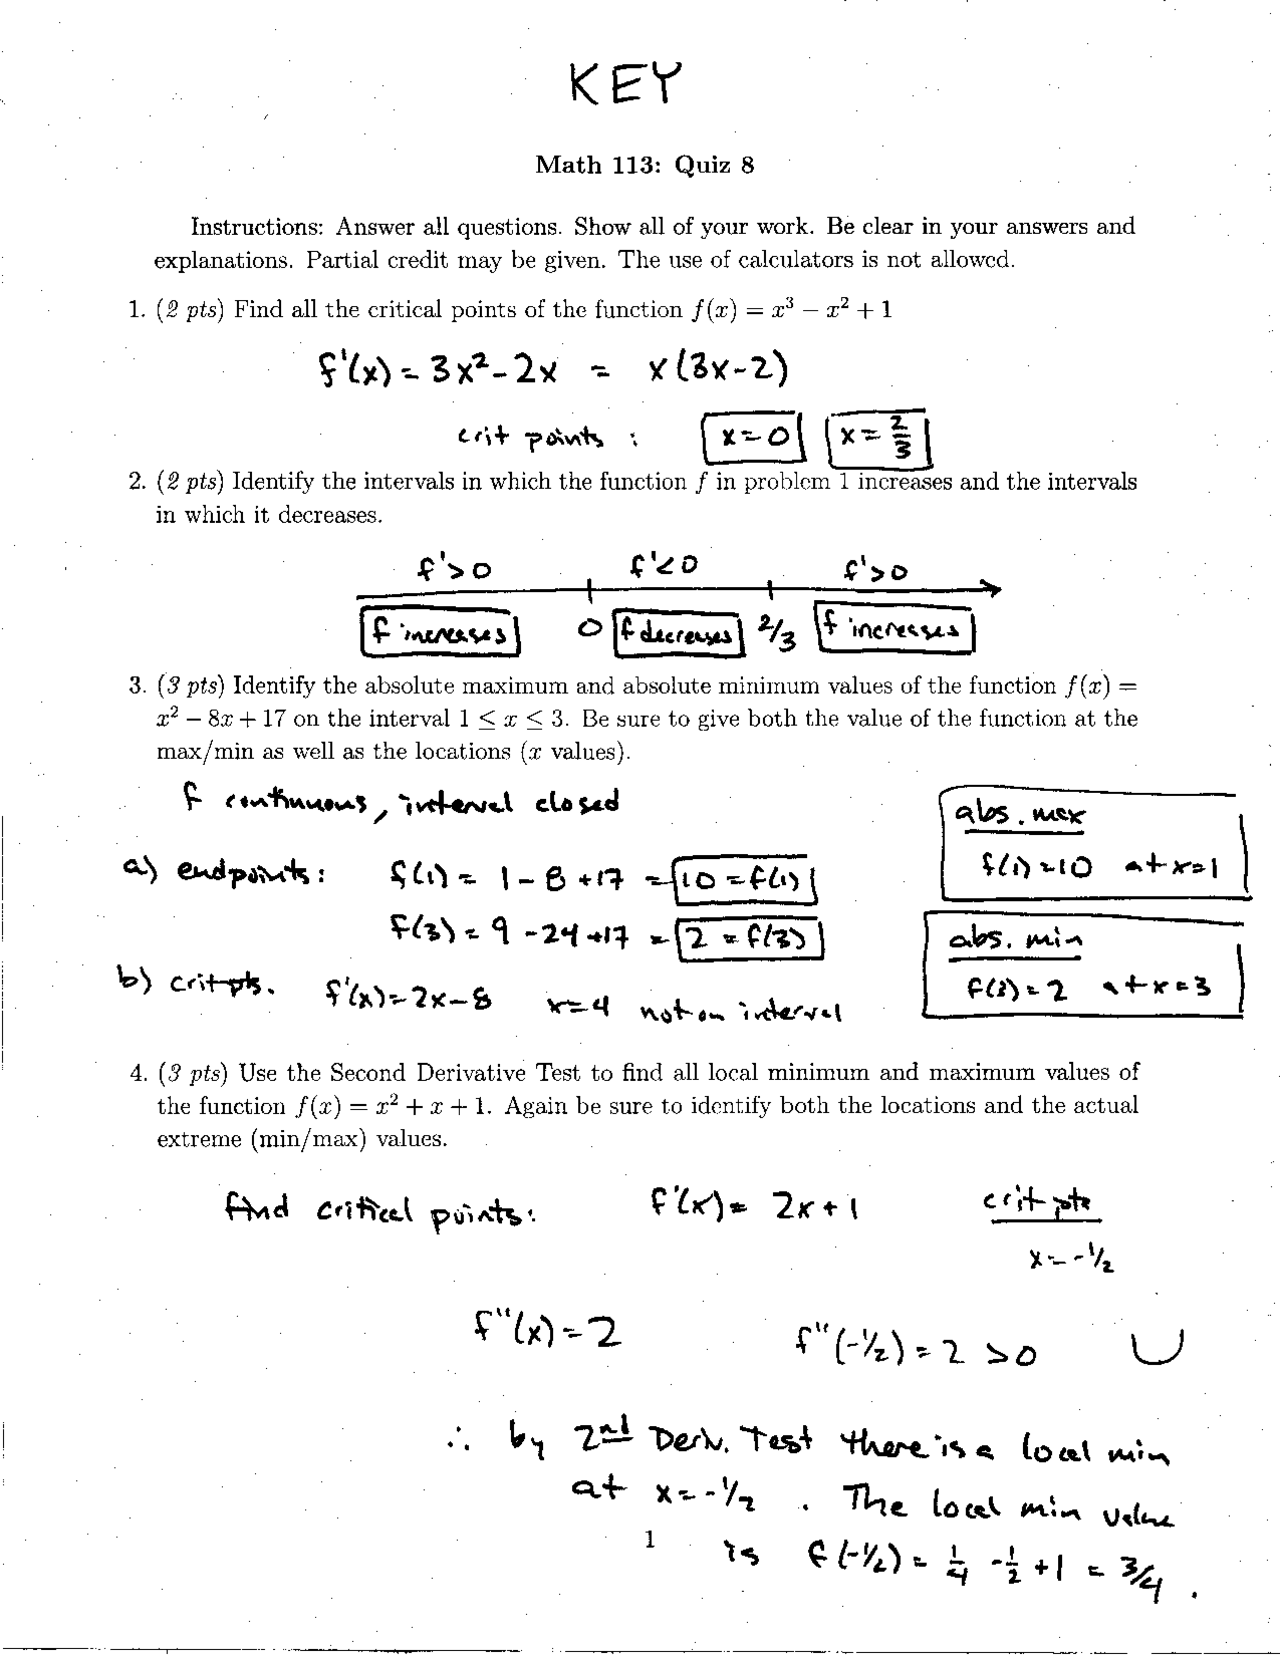 KEY
Math 113: Quiz 8
Instructions: Answer all questions. Show all of your work. Be clear in your answers and
explanations. Partial credit may be given. The use of calculators is not allowed.
1. (2 pts) Find all the critical points of the function f(x) = x³ − x² + 1
f'(x) = 3x² - 2x = x(3x-2)
crit points : x=0 x=2/3
2. (2 pts) Identify the intervals in which the function f in problem 1 increases and the intervals
in which it decreases.
f'>0 f'<0 f'>0
f increases 0 f decreases 2/3 f increases
3. (3 pts) Identify the absolute maximum and absolute minimum values of the function f(x) =
x² − 8x + 17 on the interval 1 ≤ x ≤ 3. Be sure to give both the value of the function at the
max/min as well as the locations (x values).
f continuous, interval closed
abs. max
a) endpoints: f(1) = 1 - 8 + 17 = 10 = f(1)
f(1) = 10 at x=1
f(3) = 9 - 24 + 17 = 2 = f(3)
abs. min
f(3) = 2 at x=3
b) crit pts. f'(x) = 2x - 8 x=4 not on interval
4. (3 pts) Use the Second Derivative Test to find all local minimum and maximum values of
the function f(x) = x² + x + 1. Again be sure to identify both the locations and the actual
extreme (min/max) values.
find critical points: f'(x) = 2x + 1 crit pts
x = -1/2
f''(x) = 2 f''(-1/2) = 2 > 0
∴ by 2nd Deriv. Test there is a local min
at x = -1/2 . The local min value
is f(-1/2) = 1/4 - 1/2 + 1 = 3/4 .
1